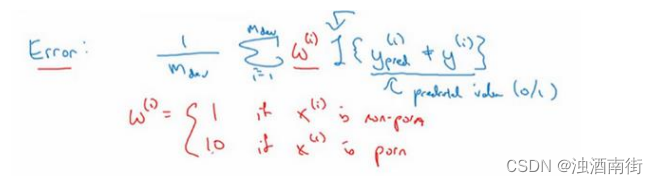 Error: 1/m_dev ∑_{i=1}^{m_dev} ω^{(i)} 1{ y_pred^{(i)} ≠ y^{(i)} }
predicted value (0/1)
ω^{(i)} = { 1 if x^{(i)} is non-porn
10 if x^{(i)} is porn
CSDN @浊酒南街